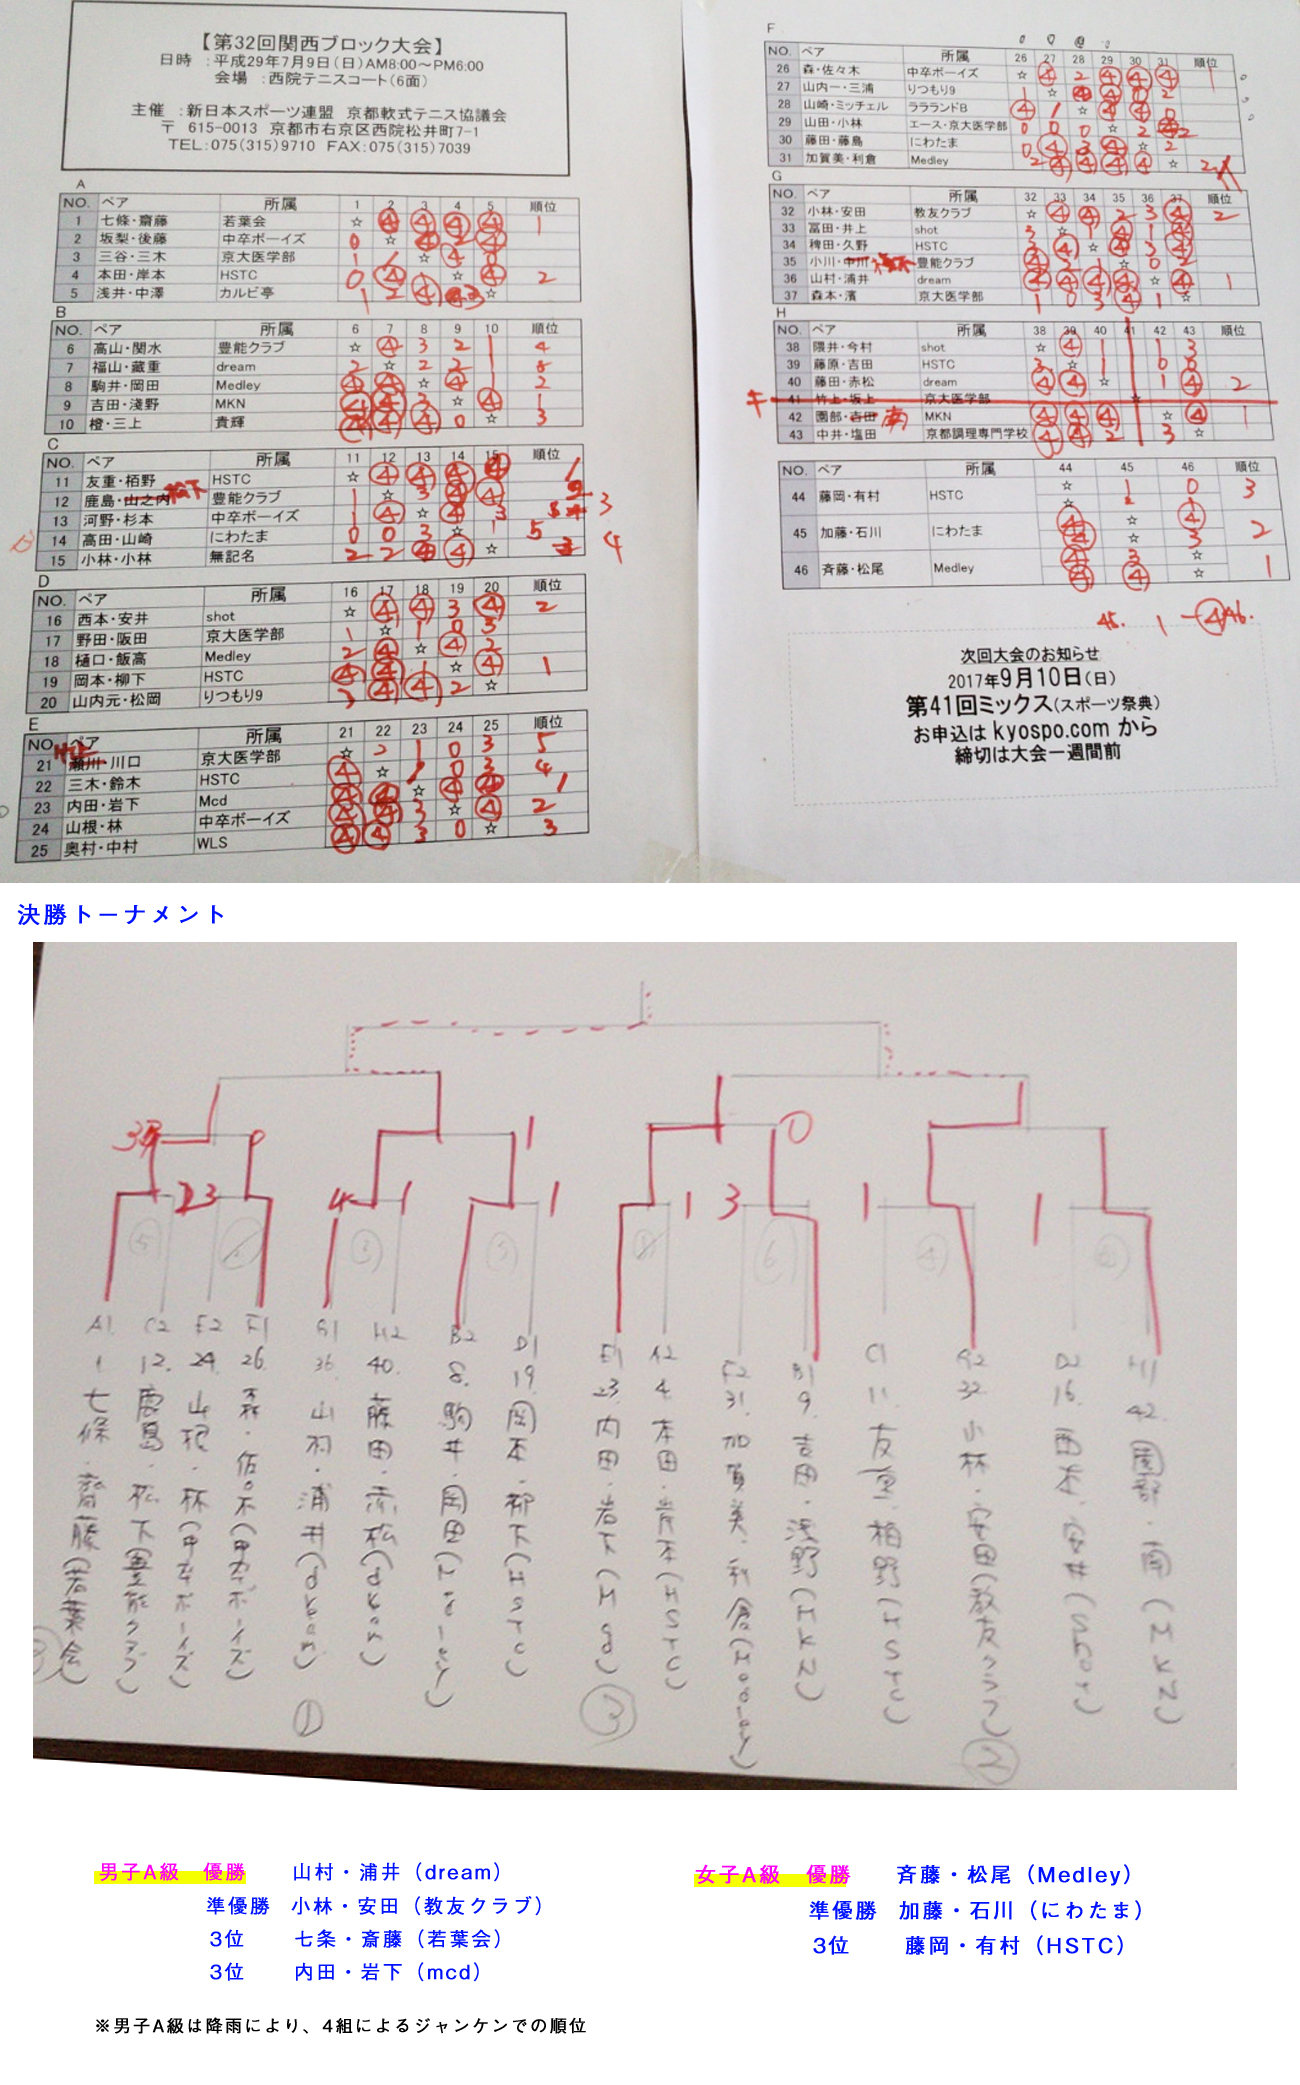 【第32回関西ブロック大会】
日時　：平成29年7月9日（日）AM8:00～PM6:00
会場　：西院テニスコート（6面）
主催　：新日本スポーツ連盟　京都軟式テニス協議会
〒　615-0013　京都市右京区西院松井町7-1
TEL:075(315)9710　FAX:075(315)7039
A
NO. ペア 所属 1 2 3 4 5 順位
1 七條・齋藤 若葉会 ☆ ④ ④ ④ ④ 1
2 坂梨・後藤 中卒ボーイズ 0 ☆ ④ 2 ④
3 三谷・三木 京大医学部 1 1 ☆ ④ 0
4 本田・岸本 HSTC 0 ④ ☆ ④ 2
5 浅井・中澤 カルビ亭 1 2 ④ 3 ☆
B
NO. ペア 所属 6 7 8 9 10 順位
6 高山・関水 豊能クラブ ☆ ④ 3 2 1 4
7 福山・藏重 dream 2 ☆ 2 2 1
8 駒井・岡田 Medley ④ ④ ☆ ④ 1 2
9 吉田・淺野 MKN ④ ④ 3 ☆ ④ 1
10 橙・三上 貴輝 ④ ④ ④ 0 ☆ 3
C
NO. ペア 所属 11 12 13 14 15 順位
11 友重・栢野 HSTC ☆ ④ ④ ④ ④ 1
12 鹿島・山之内 松下 豊能クラブ 1 ☆ 3 ④ ④ 2
13 河野・杉本 中卒ボーイズ 1 ④ ☆ ④ 3 3
14 高田・山崎 にわたま 0 0 3 ☆ 1 5
15 小林・小林 無記名 2 2 ④ ④ ☆ 4
D
NO. ペア 所属 16 17 18 19 20 順位
16 西本・安井 shot ☆ ④ ④ 3 ④ 2
17 野田・阪田 京大医学部 1 ☆ 1 0 3
18 樋口・飯高 Medley 2 ④ ☆ ④ 2
19 岡本・柳下 HSTC ④ ④ 1 ☆ ④ 1
20 山内元・松岡 りつもり9 3 ④ ④ 2 ☆
E
NO. ペア 所属 21 22 23 24 25 順位
21 瀬川・川口 京大医学部 ☆ 2 1 0 3 5
22 三木・鈴木 HSTC ④ ☆ 1 0 3 4
23 内田・岩下 Mcd ④ ④ ☆ ④ ④ 1
24 山根・林 中卒ボーイズ ④ ④ 3 ☆ ④ 2
25 奥村・中村 WLS ④ ④ 3 0 ☆ 3
F
NO. ペア 所属 26 27 28 29 30 31 順位
26 森・佐々木 中卒ボーイズ ☆ ④ 2 ④ ④ ④ 1
27 山内一・三浦 りつもり9 1 ☆ ④ ④ 0 2
28 山崎・ミッチェル ララランドB ④ 1 ☆ ④ ④ 0
29 山田・小林 エース・京大医学部 0 0 0 ☆ 2 2
30 藤田・藤島 にわたま 0 ④ 3 ④ ☆ 2
31 加賀美・利倉 Medley 2 ④ ④ ④ ④ ☆ 2
G
NO. ペア 所属 32 33 34 35 36 37 順位
32 小林・安田 教友クラブ ☆ ④ ④ 2 3 ④ 2
33 冨田・井上 shot 3 ☆ 1 ④ 1 ④
34 稗田・久野 HSTC 3 ④ ☆ ④ 3 ④
35 小川・中川 豊能クラブ ④ 2 1 ☆ 0 2
36 山村・浦井 dream ④ ④ ④ ④ ☆ ④ 1
37 森本・濱 京大医学部 1 0 3 ④ 1 ☆
H
NO. ペア 所属 38 39 40 41 42 43 順位
38 隈井・今村 shot ☆ ④ 1 1 3
39 藤原・吉田 HSTC 3 ☆ 1 0 0
40 藤田・赤松 dream ④ ④ ☆ 1 ④ 2
キ 41 竹上・坂上 京大医学部 ☆
42 園部・吉田 南 MKN ④ ④ ④ ☆ ④ 1
43 中井・塩田 京都調理専門学校 ④ ④ 2 3 ☆
NO. ペア 所属 44 45 46 順位
44 藤岡・有村 HSTC ☆ 1 0 3
☆ 2 1
45 加藤・石川 にわたま ④ ☆ ④ 2
④ ☆ 3
46 斉藤・松尾 Medley ④ 3 ☆ 1
④ ④ ☆
45. 1 - ④ 46.
次回大会のお知らせ
2017年9月10日（日）
第41回ミックス（スポーツ祭典）
お申込は kyospo.com から
締切は大会一週間前
決勝トーナメント
3 0 1 0
2 3 4 1 1 1 3 1 1
A1 1 七條・齋藤（若葉会）
C2 12. 鹿島・松下（豊能クラブ）
E2 24. 山根・林（中卒ボーイズ）
F1 26. 森・佐々木（中卒ボーイズ）
G1 36. 山村・浦井（dream）
H2 40. 藤田・赤松（dream）
B2 8. 駒井・岡田（Medley）
D1 19. 岡本・柳下（HSTC）
E1 23. 内田・岩下（Mcd）
A2 4. 本田・岸本（HSTC）
F2 31. 加賀美・利倉（Medley）
B1 9. 吉田・浅野（MKN）
C1 11. 友重・栢野（HSTC）
G2 32. 小林・安田（教友クラブ）
D2 16. 西本・安井（shot）
H1 42. 園部・南（MKN）
③ ① ③ ②
男子A級　優勝　山村・浦井（dream）
準優勝　小林・安田（教友クラブ）
3位　七条・斎藤（若葉会）
3位　内田・岩下（mcd）
※男子A級は降雨により、4組によるジャンケンでの順位
女子A級　優勝　斉藤・松尾（Medley）
準優勝　加藤・石川（にわたま）
3位　藤岡・有村（HSTC）